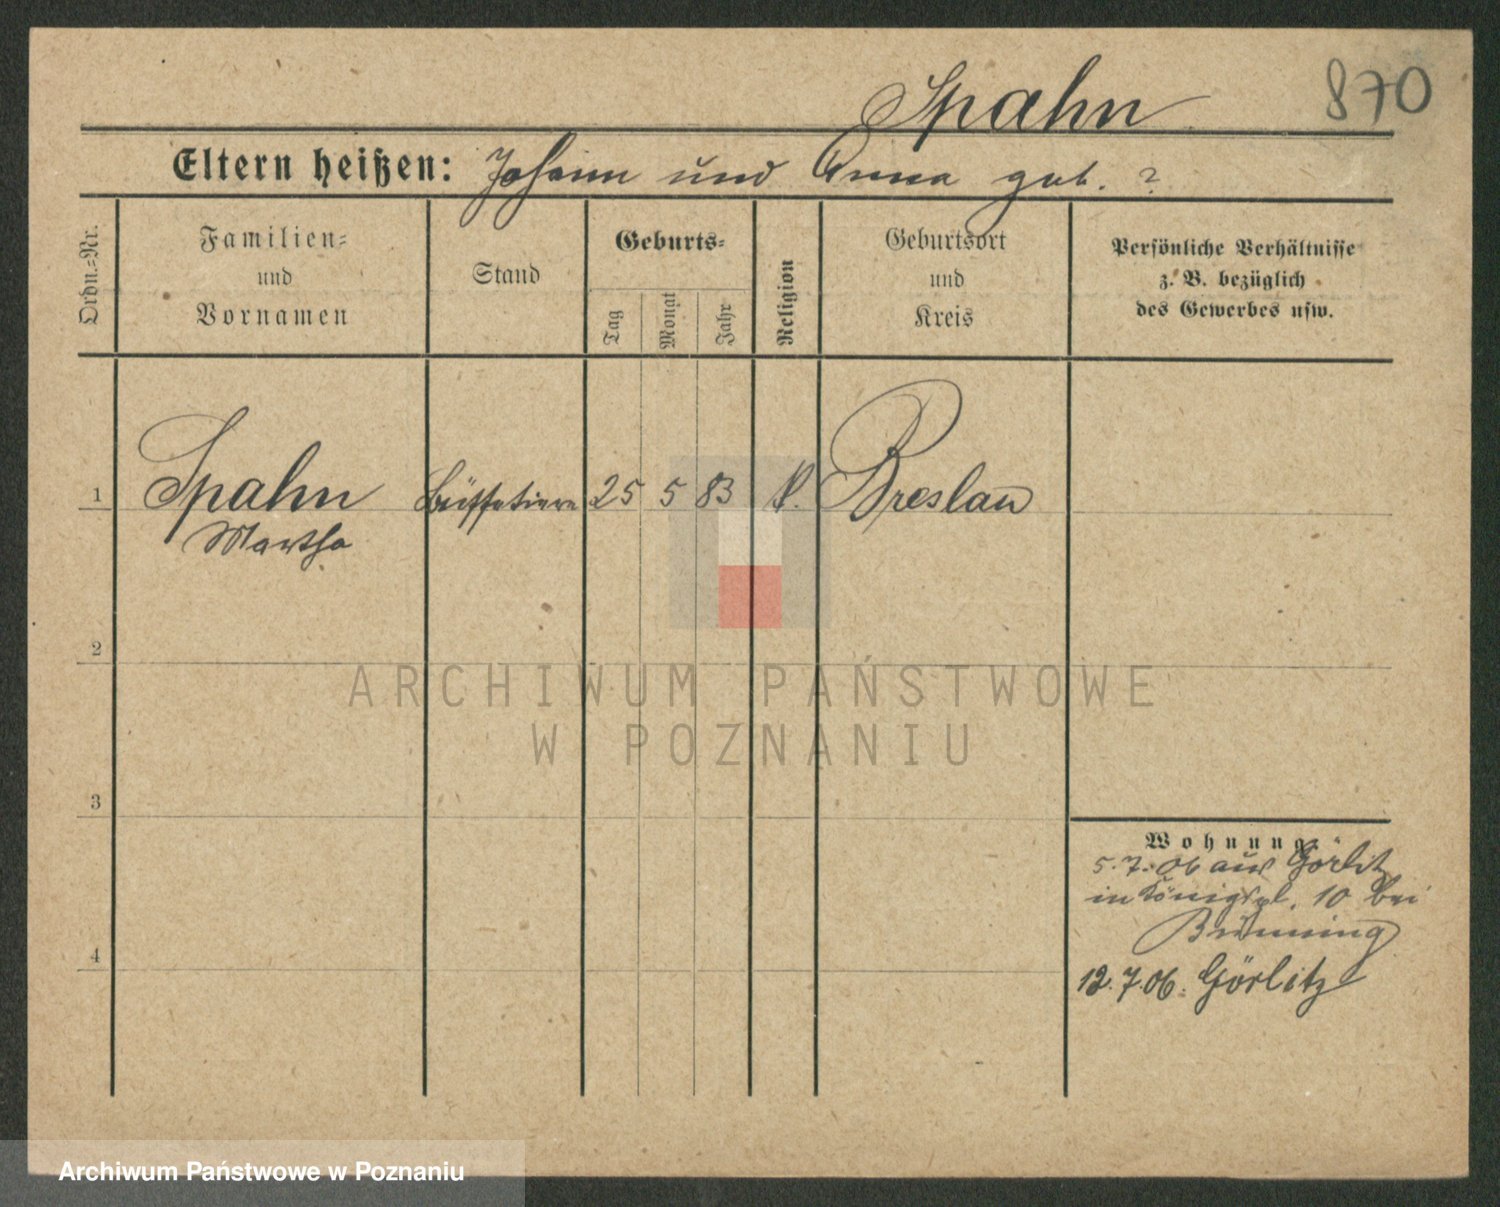 Spahn
870
Eltern heißen: Johann und Anna geb. ?
Ordn.-Nr.
Familien-
und
Vornamen
Stand
Geburts-
Tag
Monat
Jahr
Religion
Geburtsort
und
Kreis
Persönliche Verhältnisse
z. B. bezüglich
des Gewerbes usw.
1
Spahn
Martha
Büffetiere
25
5
83
Breslau
2
ARCHIWUM PAŃSTWOWE
W POZNANIU
3
4
Wohnung.
5.7.06 aus Görlitz
in Königspl. 10 bei
12.7.06. Görlitz
Archiwum Państwowe w Poznaniu